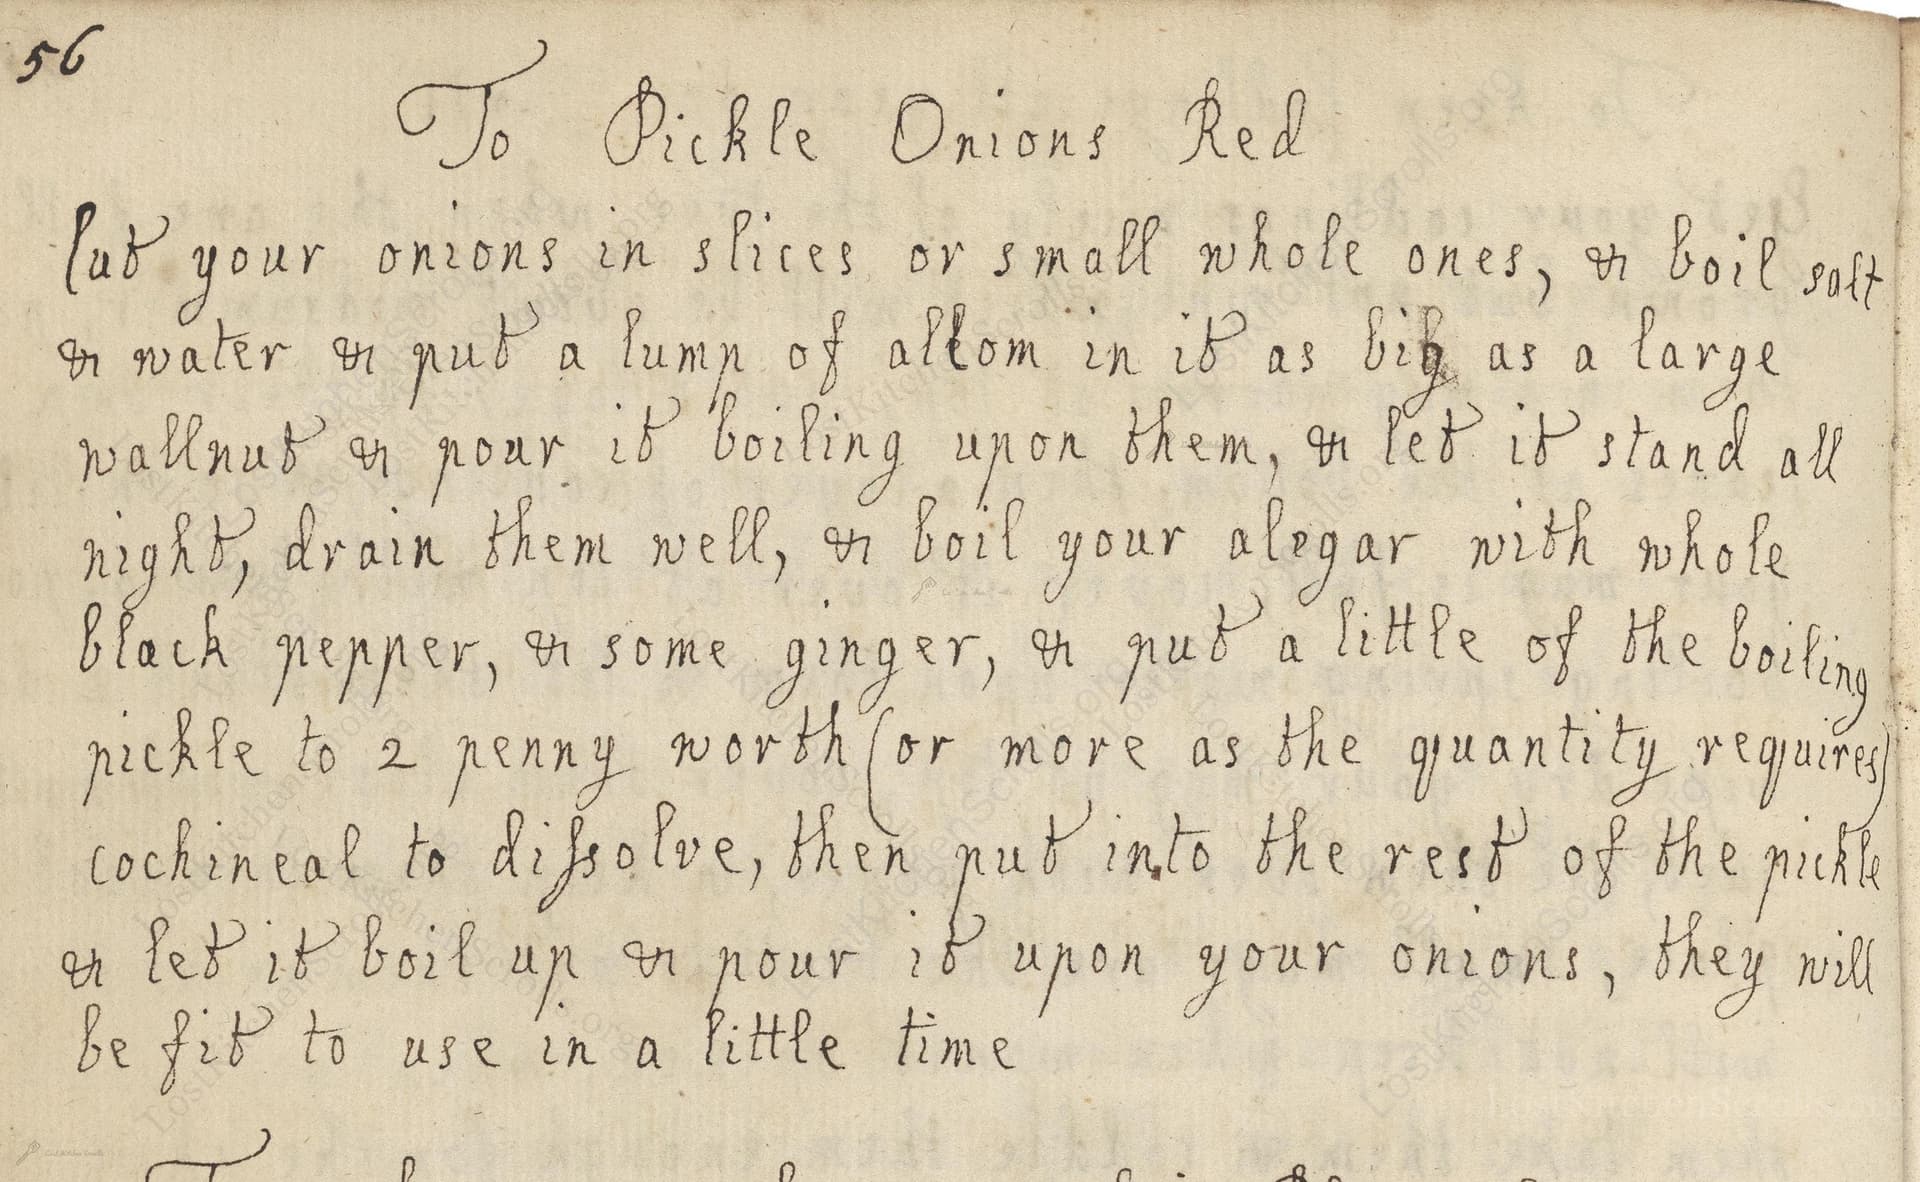 56
To Pickle Onions Red
Cut your onions in slices or small whole ones, & boil salt
& water & put a lump of allom in it as big as a large
wallnut & pour it boiling upon them, & let it stand all
night, drain them well, & boil your alegar with whole
black pepper, & some ginger, & put a little of the boiling
pickle to 2 penny worth (or more as the quantity requires)
cochineal to diſsolve, then put into the rest of the pickle
& let it boil up & pour it upon your onions, they will
be fit to use in a little time